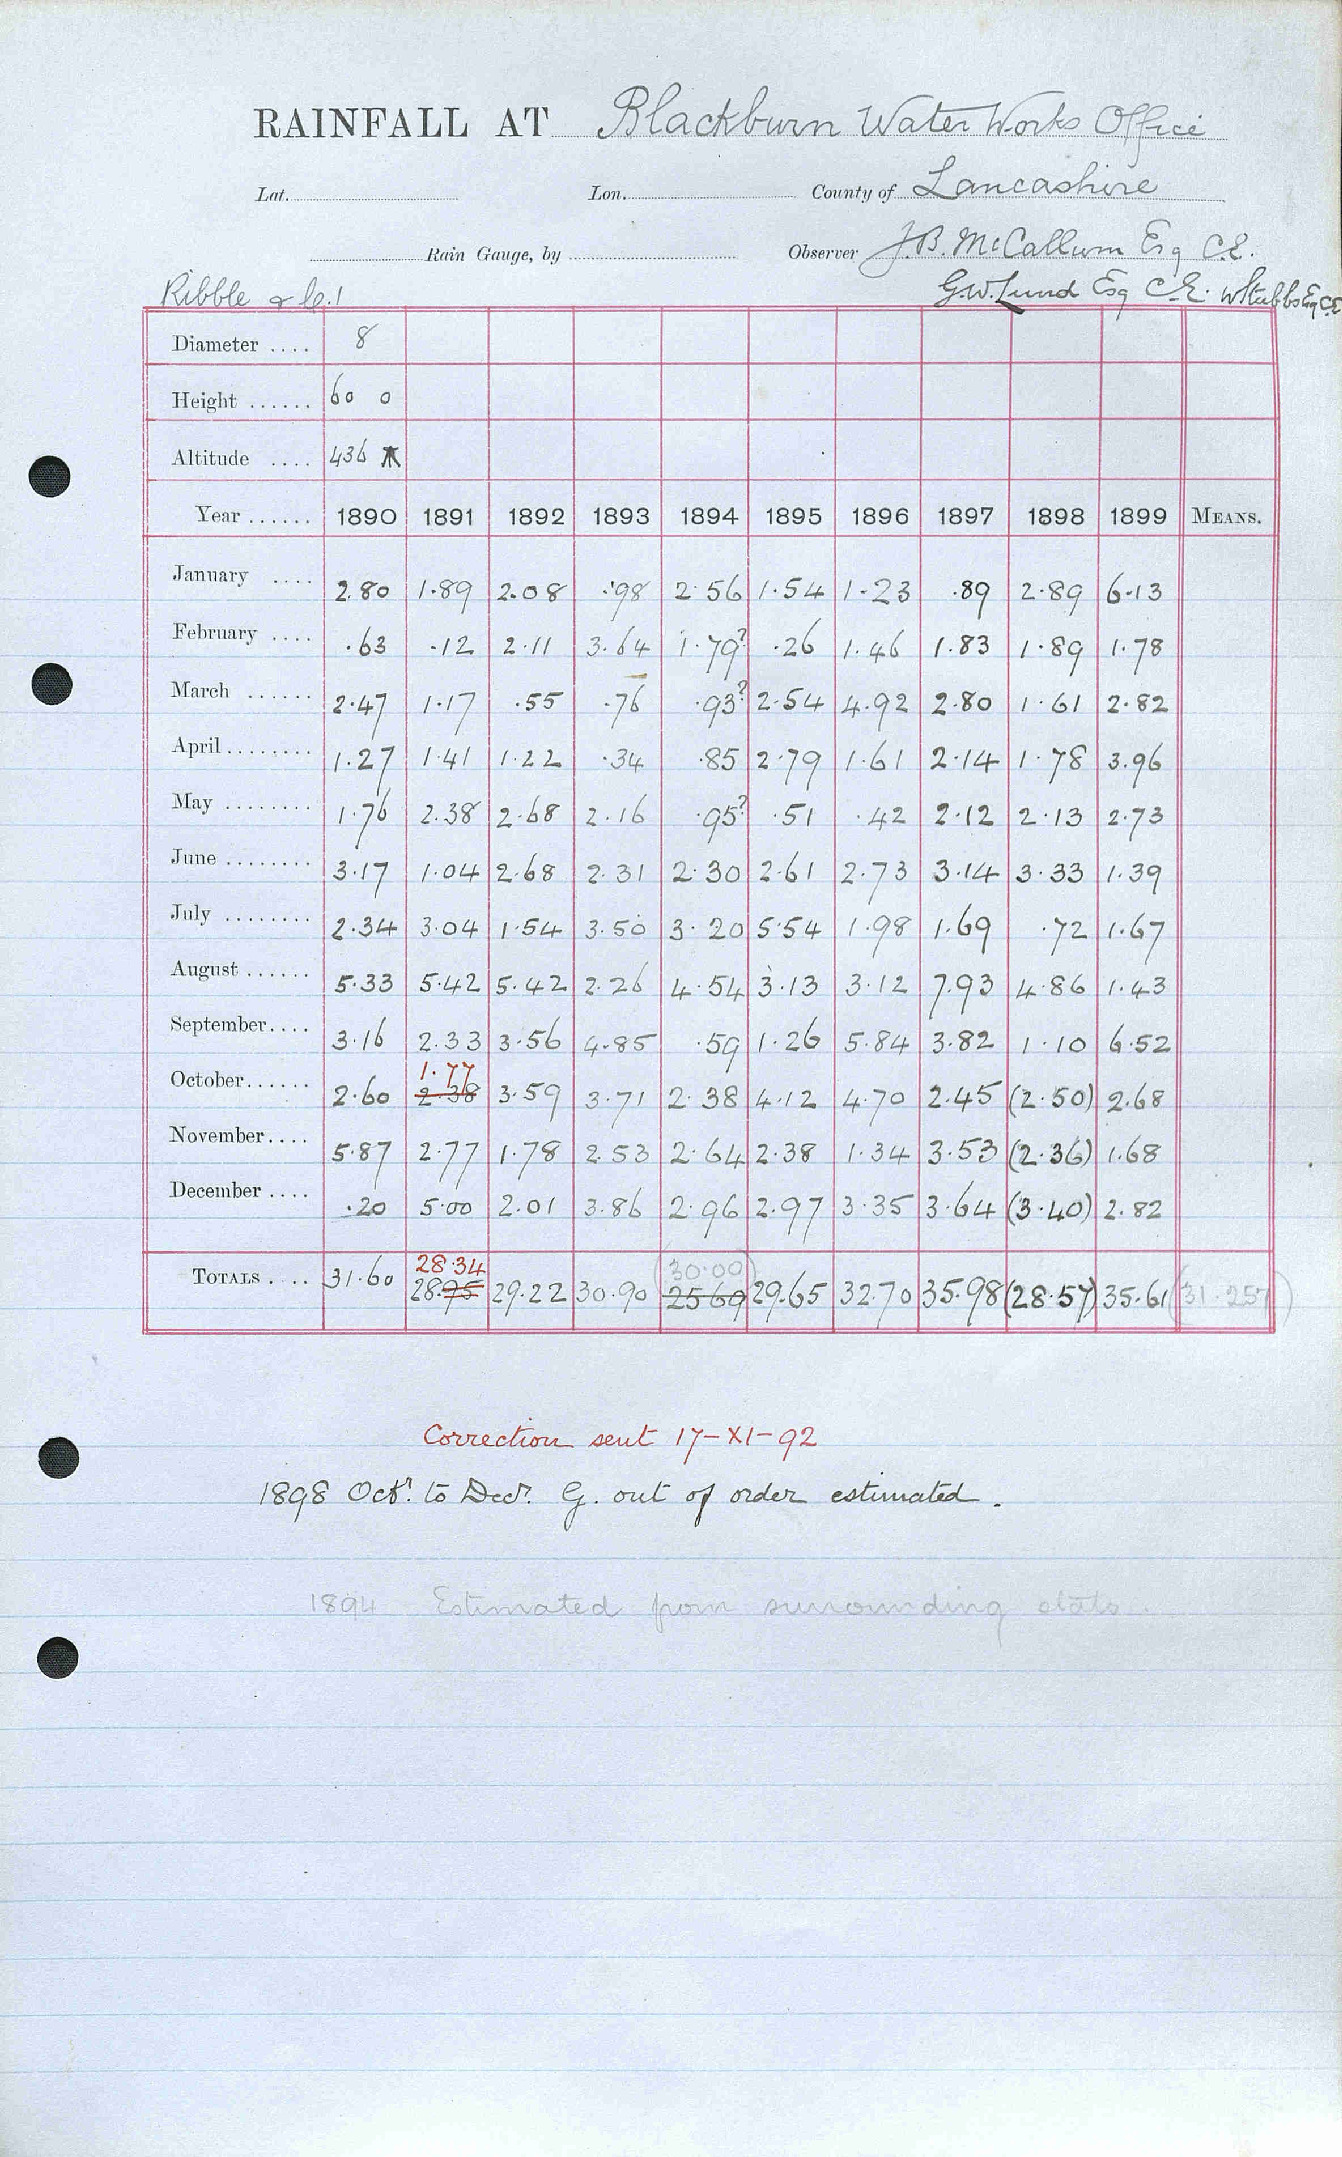 RAINFALL AT Blackburn Water Works Office
Lat. Lon. County of Lancashire
Rain Gauge, by Observer J.B. McCallum Esq C.E.
Ribble & c.1 G.W. Lund Esq C.E. W Stubbs Esq CE
Diameter .... 8
Height ...... 60 0
Altitude .... 436
Year ...... 1890 1891 1892 1893 1894 1895 1896 1897 1898 1899 MEANS.
January .... 2.80 1.89 2.08 .98 2.56 1.54 1.23 .89 2.89 6.13
February .... .63 .12 2.11 3.64 1.79? .26 1.46 1.83 1.89 1.78
March ...... 2.47 1.17 .55 .76 .93? 2.54 4.92 2.80 1.61 2.82
April ........ 1.27 1.41 1.22 .34 .85 2.79 1.61 2.14 1.78 3.96
May ........ 1.76 2.38 2.68 2.16 .95? .51 .42 2.12 2.13 2.73
June ........ 3.17 1.04 2.68 2.31 2.30 2.61 2.73 3.14 3.33 1.39
July ........ 2.34 3.04 1.54 3.50 3.20 5.54 1.98 1.69 .72 1.67
August ...... 5.33 5.42 5.42 2.26 4.54 3.13 3.12 7.93 4.86 1.43
September.... 3.16 2.33 3.56 4.85 .59 1.26 5.84 3.82 1.10 6.52
1.77
October...... 2.60 2.38 3.59 3.71 2.38 4.12 4.70 2.45 (2.50) 2.68
November.... 5.87 2.77 1.78 2.53 2.64 2.38 1.34 3.53 (2.36) 1.68
December .... .20 5.00 2.01 3.86 2.96 2.97 3.35 3.64 (3.40) 2.82
28.34 (30.00)
TOTALS .... 31.60 28.95 29.22 30.90 25.69 29.65 32.70 35.98 (28.57) 35.61 (31.257)
Correction sent 17-XI-92
1898 Octr. to Decr. G. out of order estimated.
1894 Estimated from surrounding stats.